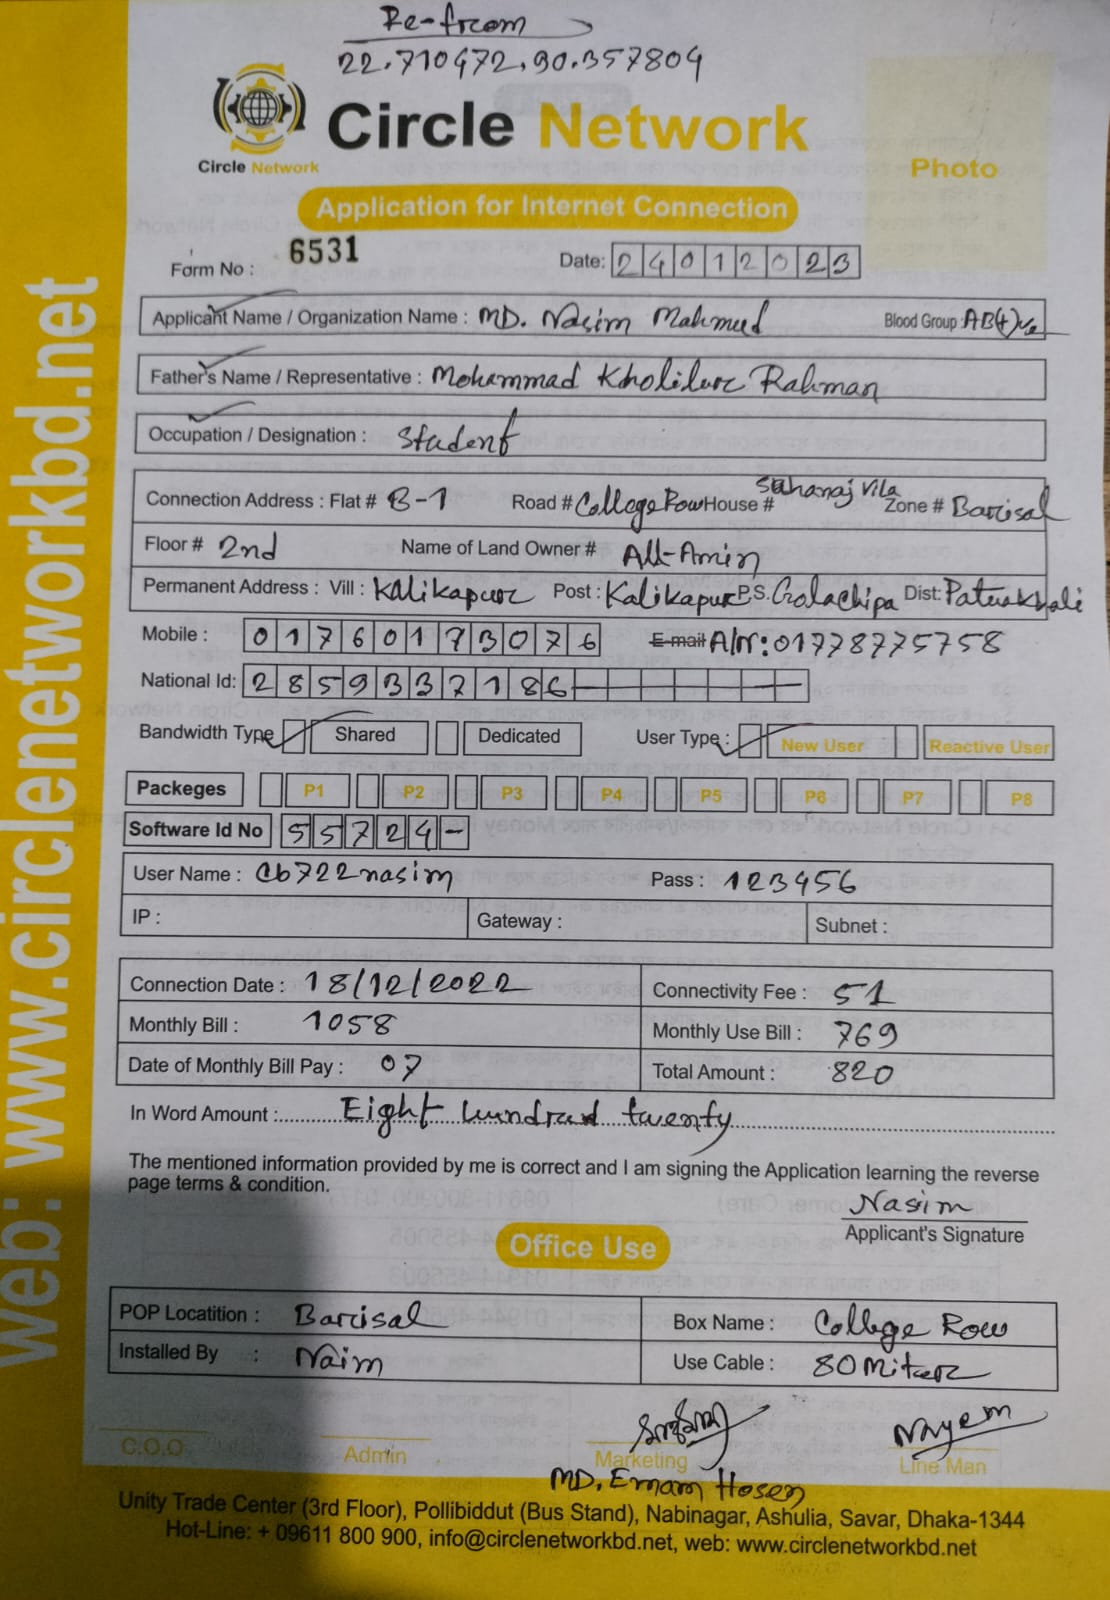 Re-from
22.710472,90.357804
Circle Network
Circle Network
Photo
Application for Internet Connection
Form No : 6531 Date: 24012023
Applicant Name / Organization Name : MD. Nasim Mahmud Blood Group : AB(+)ve
Father's Name / Representative : Mohammad Kholilur Rahman
Occupation / Designation : Student
Connection Address : Flat # B-1 Road # College Row House # Sahanaj Vila Zone # Barisal
Floor # 2nd Name of Land Owner # All-Amin
Permanent Address : Vill : Kalikapur Post : Kalikapur P.S. Golachipa Dist: Patuakhali
Mobile : 01760173076 E-mail A/Nr: 01778775758
National Id: 2859337186
Bandwidth Type Shared Dedicated User Type : New User Reactive User
Packeges P1 P2 P3 P4 P5 P6 P7 P8
Software Id No 55724-
User Name : Cb722nasim Pass : 123456
IP : Gateway : Subnet :
Connection Date : 18/12/2022 Connectivity Fee : 51
Monthly Bill : 1058 Monthly Use Bill : 769
Date of Monthly Bill Pay : 07 Total Amount : 820
In Word Amount : Eight hundrad twenty
The mentioned information provided by me is correct and I am signing the Application learning the reverse
page terms & condition.
Nasim
Applicant's Signature
Office Use
POP Locatition : Barisal Box Name : College Row
Installed By : Naim Use Cable : 80 Miter
Nayem
C.O.O Admin Marketing Line Man
MD. Emam Hosen
Unity Trade Center (3rd Floor), Pollibiddut (Bus Stand), Nabinagar, Ashulia, Savar, Dhaka-1344
Hot-Line: + 09611 800 900, info@circlenetworkbd.net, web: www.circlenetworkbd.net
web: www.circlenetworkbd.net